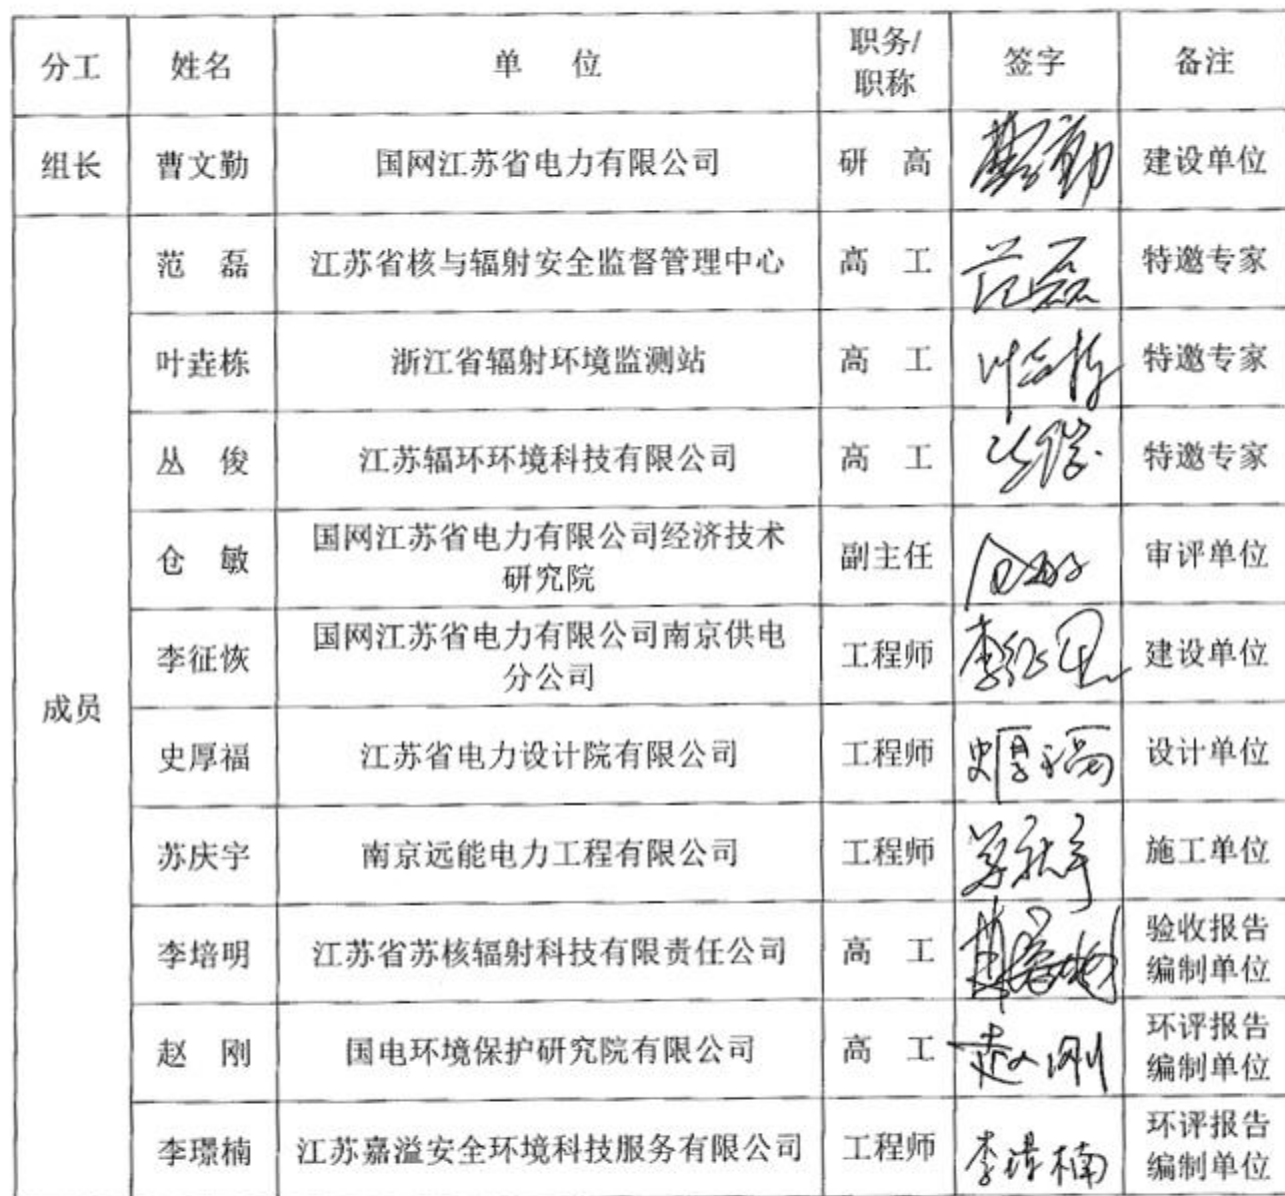 分工 姓名 单 位 职务/职称 签字 备注
组长 曹文勤 国网江苏省电力有限公司 研 高 曹文勤 建设单位
成员
范 磊 江苏省核与辐射安全监督管理中心 高 工 范磊 特邀专家
叶垚栋 浙江省辐射环境监测站 高 工 叶垚栋 特邀专家
丛 俊 江苏辐环环境科技有限公司 高 工 丛俊 特邀专家
仓 敏 国网江苏省电力有限公司经济技术研究院 副主任 仓敏 审评单位
李征恢 国网江苏省电力有限公司南京供电分公司 工程师 李征恢 建设单位
史厚福 江苏省电力设计院有限公司 工程师 史厚福 设计单位
苏庆宇 南京远能电力工程有限公司 工程师 苏庆宇 施工单位
李培明 江苏省苏核辐射科技有限责任公司 高 工 验收报告编制单位
赵 刚 国电环境保护研究院有限公司 高 工 赵刚 环评报告编制单位
李璟楠 江苏嘉溢安全环境科技服务有限公司 工程师 李璟楠 环评报告编制单位